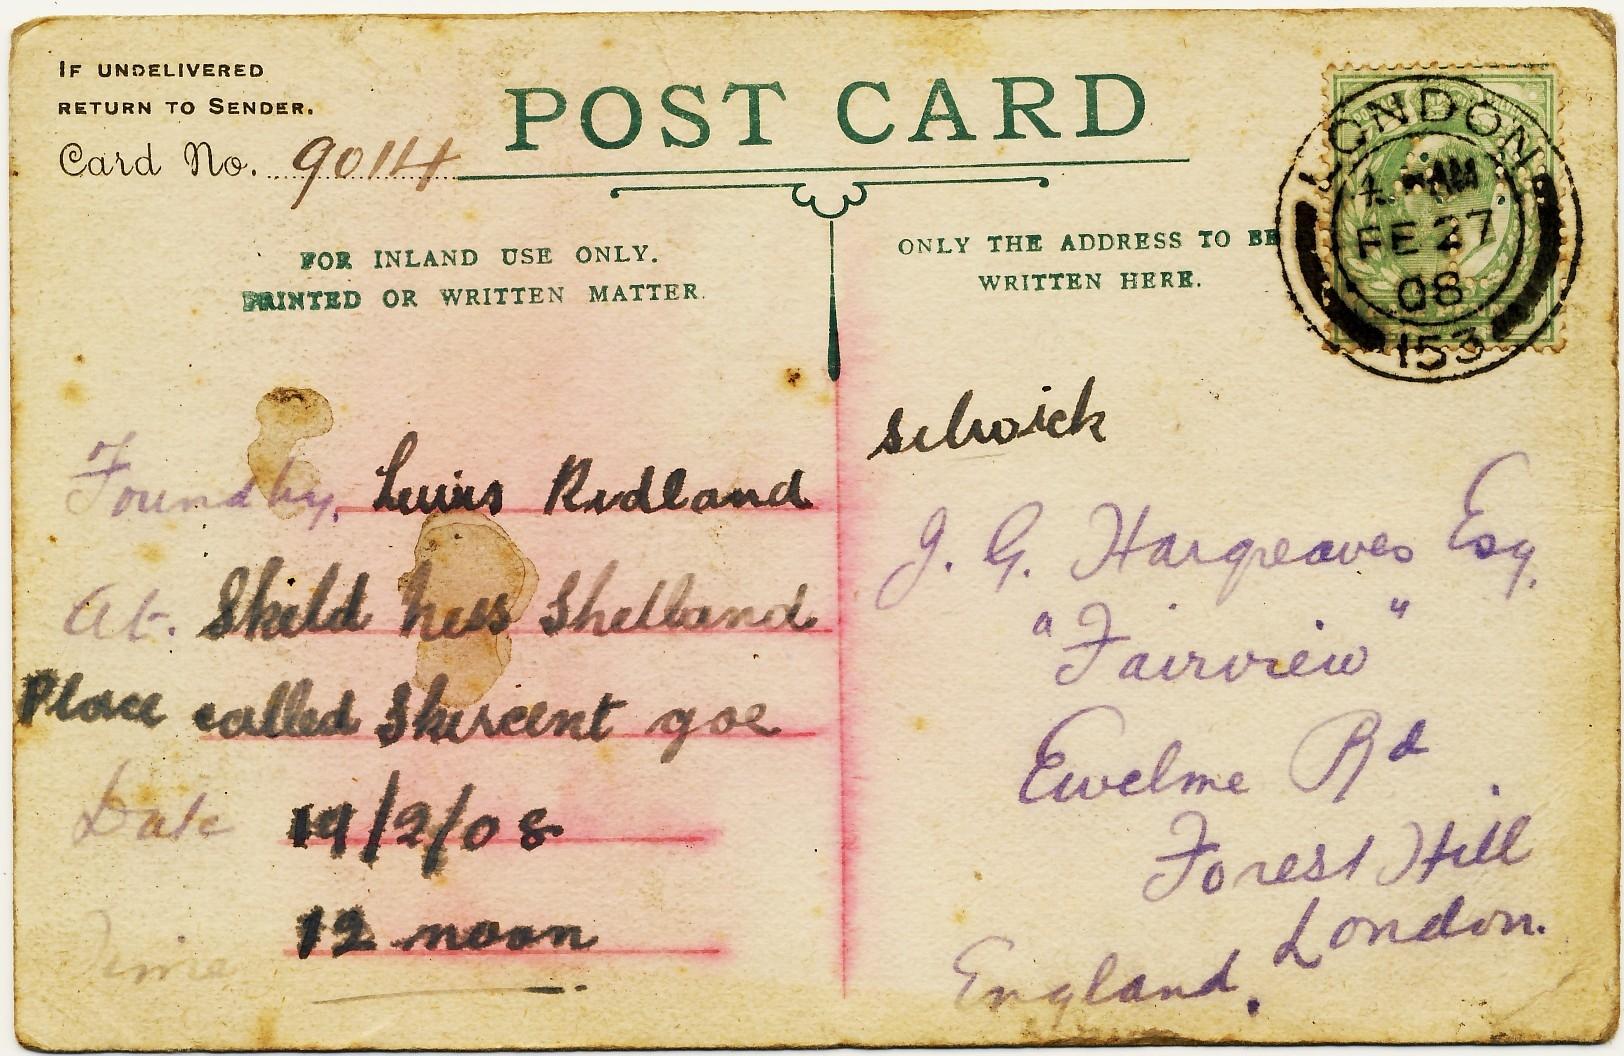 IF UNDELIVERED
RETURN TO SENDER.
Card No. 9014
POST CARD
FOR INLAND USE ONLY.
PRINTED OR WRITTEN MATTER.
ONLY THE ADDRESS TO BE
WRITTEN HERE.
LONDON
AM
FE 27
08
153
Found by. Ridland
At. Skeld Shetland
Place called goe
Date 19/2/08
Time 12 noon
J. G. Hargreaves Esq.
"Fairview"
Ewelme Rd
Forest Hill
London.
England.